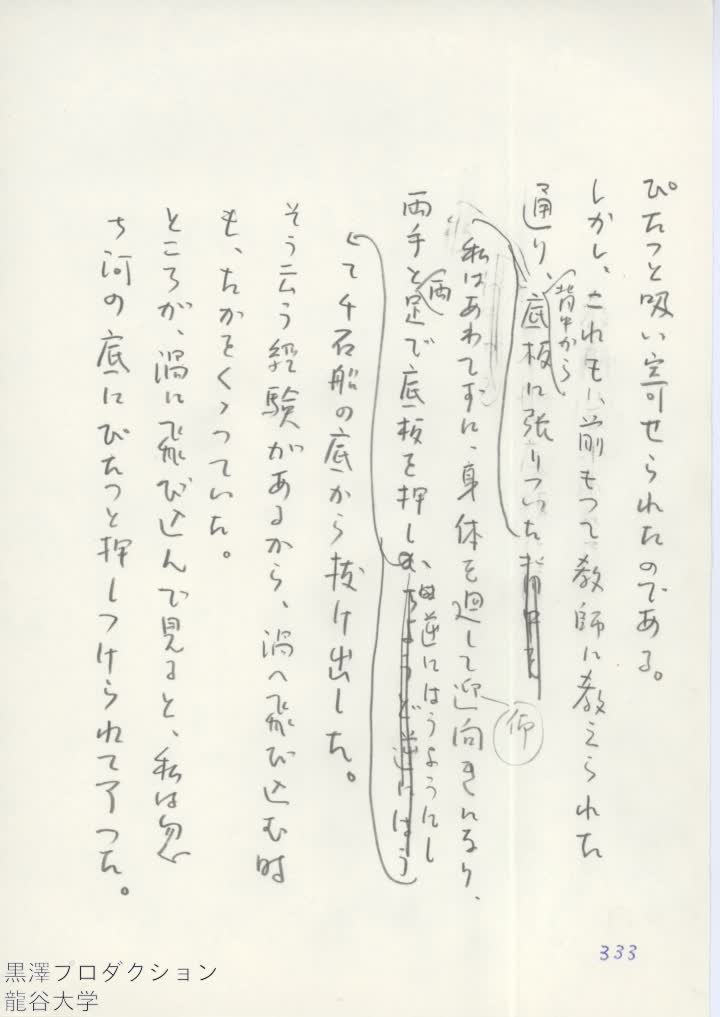 ぴたっと吸い寄せられたのである。
しかし、これも、前もって教師に教えられた
通り、背中から底板に張りついた背中を
私はあわてずに、身体を廻して迎向きになり、
仰
両手と両足で底板を押し、ちょうど逆にはう
逆にはうようにし
て千石船の底から抜け出した。
そう云う経験があるから、渦へ飛び込む時
も、たかをくくっていた。
ところが、渦に飛び込んで見ると、私は忽
ち河の底にぴたっと押しつけられて了った。
333
黒澤プロダクション
龍谷大学